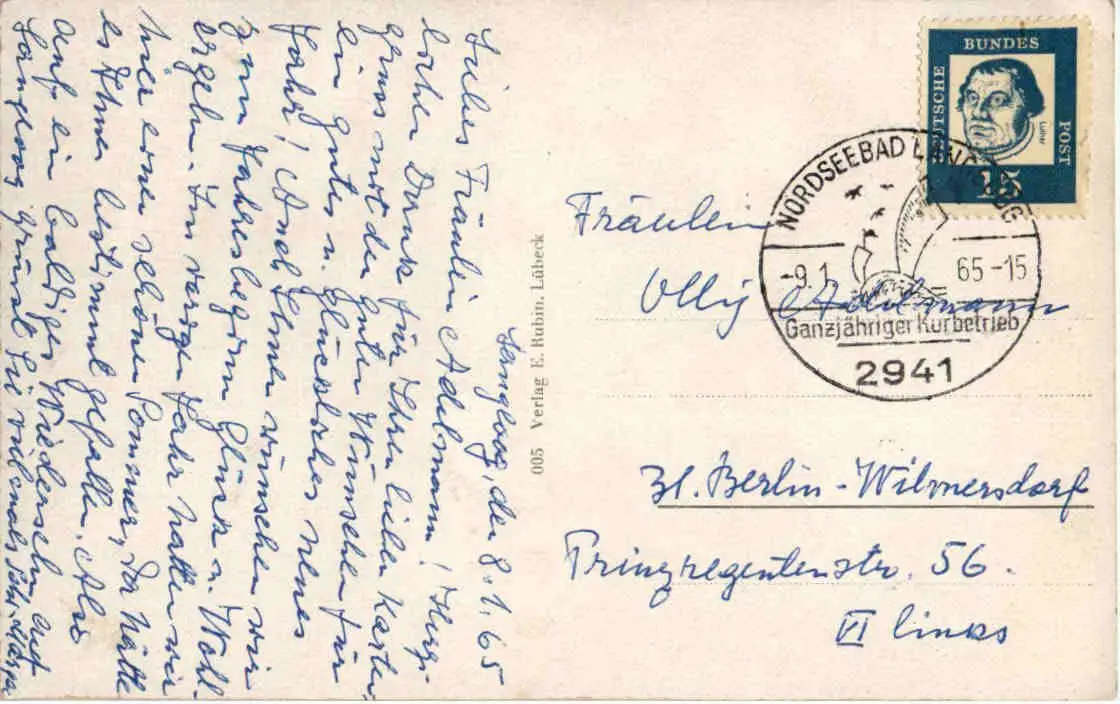 Langeoog, den 8.1.65
Liebes Fräulein Adelmann! Herz-
lichen Dank für Ihren lieben Karten-
gruss mit den guten Wünschen für
ein gutes u. glückliches neues
Jahr! Auch Ihnen wünschen wir
zum Jahresbeginn Glück u. Wohl-
ergehn. Im vorigen Jahr hatten wir
hier einen schönen Sommer, da hätte
es Ihnen bestimmt gefallen. Also
auf ein baldiges Wiedersehn auf
Langeoog grüsst Sie vielmals
005 Verlag E. Rubin, Lübeck
DEUTSCHE
BUNDES
POST
Luther
15
NORDSEEBAD LANGEOOG
-9.1. 65-15
Ganzjähriger Kurbetrieb
2941
Fräulein
Olly Adelmann
31. Berlin-Wilmersdorf
Prinzregentenstr. 56.
VI links